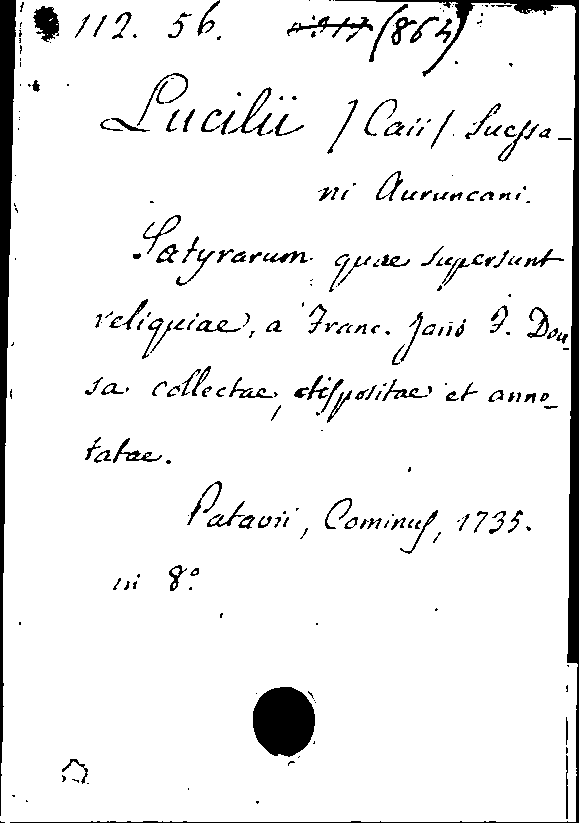 112. 56. (864)
Lucilii / Caii / Suessa-
ni Auruncani.
Satyrarum quae supersunt
reliquiae, a Franc. Jano F. Dou-
sa collectae, dispositae et anno-
tatae.
Patavii, Cominus, 1735.
in 8°.